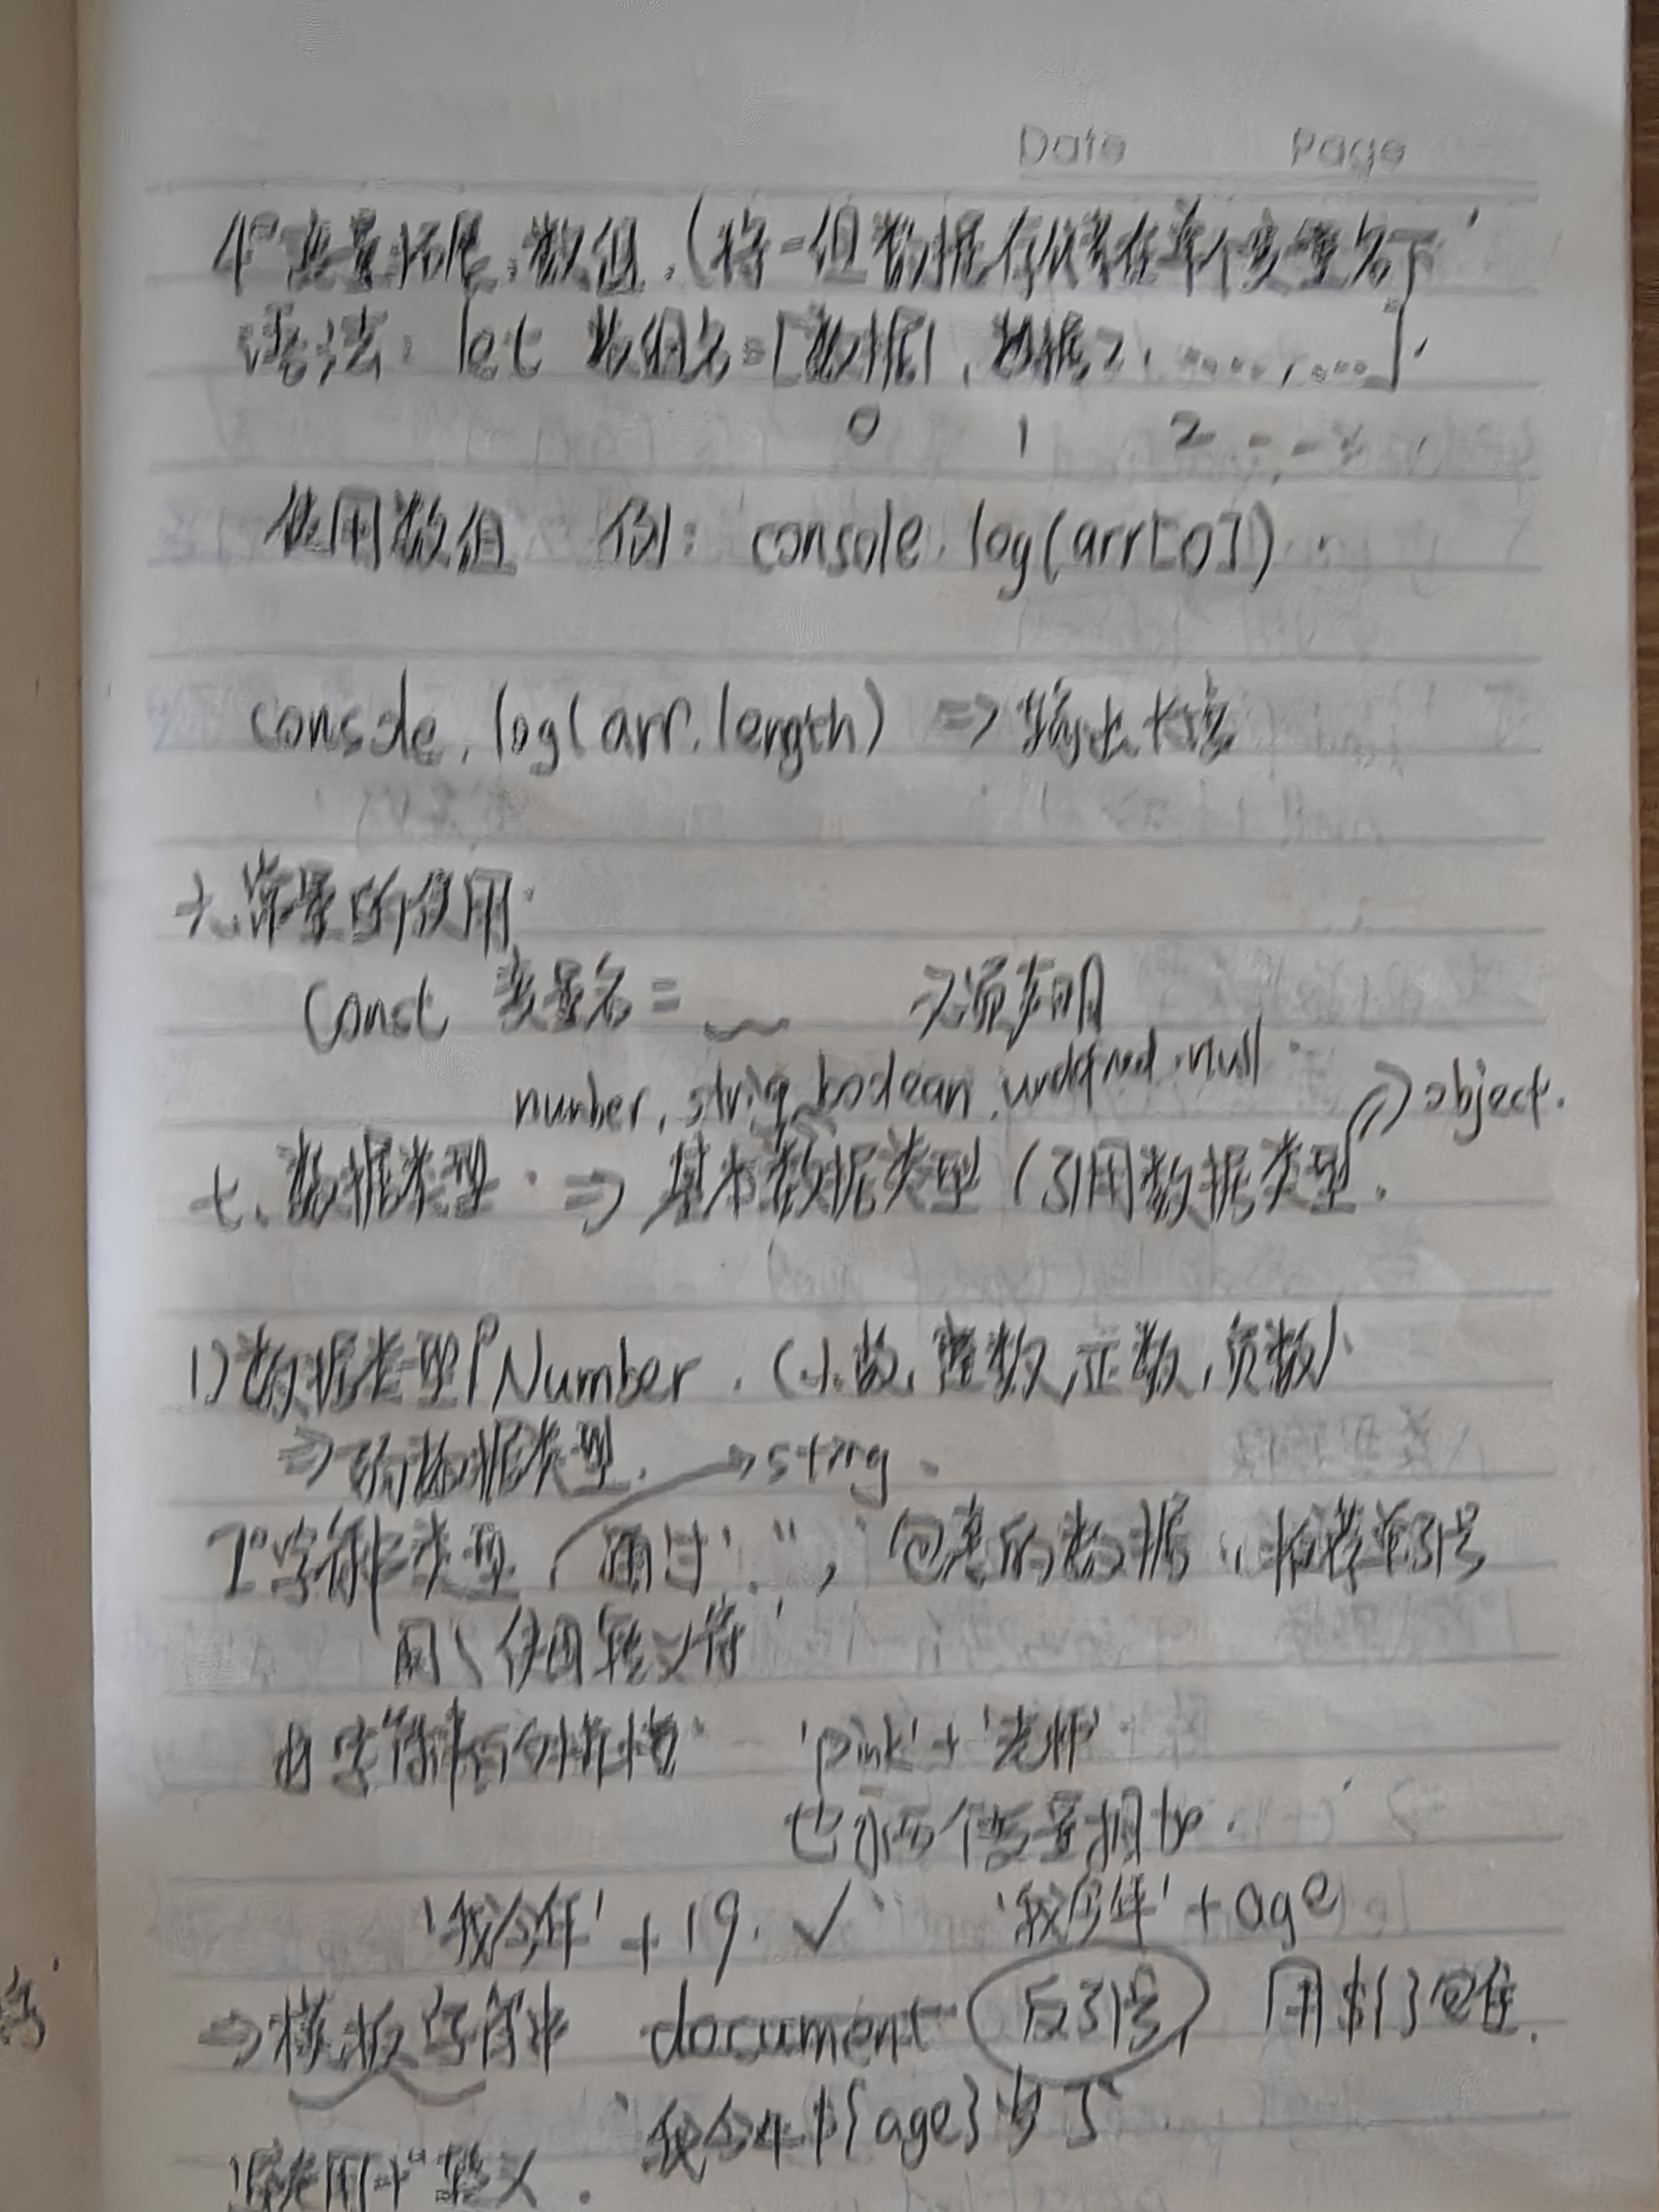 Date Page
4° 变量拓展:数组.(将一组数据存储在单个变量名下
语法: let 数组名=[数据1,数据2, ....,....].
0 1 2
使用数组 例: console.log(arr[0])
console.log(arr.length) => 输出长度
六.常量的使用:
const 变量名= 必须声明
number, strig, boolean, undefined.null
=> object.
七、数据类型 => 基本数据类型(引用数据类型.
1)数据类型 Number.(小数,整数,正数,负数)
=> 数据类型.
string.
2°字符串类型 通过' ", 包裹的数据,推荐单引号
用\ 使用转义符
字符串的拼接 'pink'+'老师'
也可两个变量相加.
'我今年'+19. ✓ '我今年'+age
=>模板字符串 document 反引号, 用${}包住.
`我今年${age}岁了`